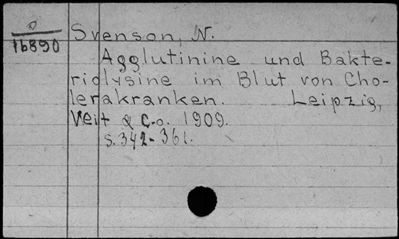 o
16890
Svenson, N.
Agglutinine und Bakte-
riolysine im Blut von Cho-
lerakranken. Leipzig,
Veit & Co. 1909.
S. 342-361.